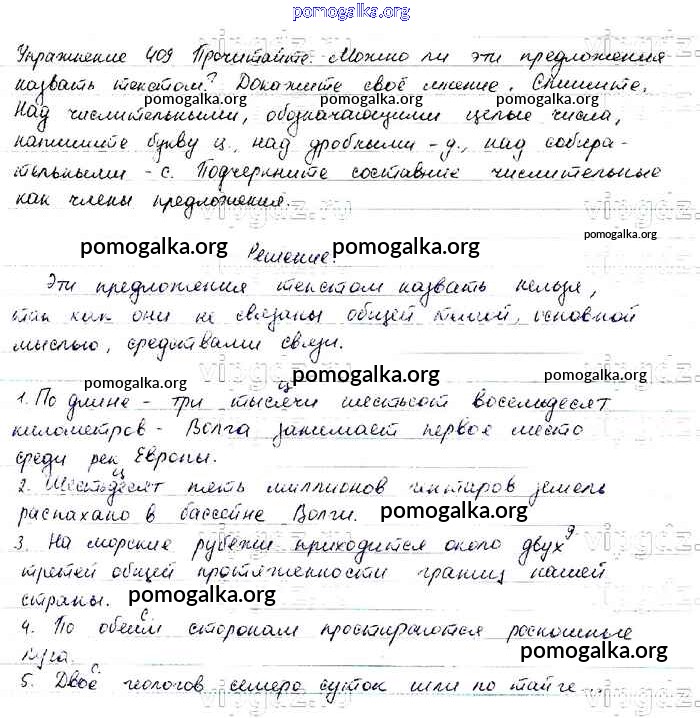 pomogalka.org
Упражнение 409 Прочитайте. Можно ли эти предложения
назвать текстом? Докажите своё мнение. Спишите.
pomogalka.org pomogalka.org pomogalka.org
Над числительными, обозначающими целые числа,
напишите букву ц., над дробными - д., над собира-
тельными - с. Подчеркните составные числительные
как члены предложения.
pomogalka.org
pomogalka.org Решение: pomogalka.org
Эти предложения текстом назвать нельзя,
так как они не связаны общей темой, основной
мыслью, средствами связи.
pomogalka.org pomogalka.org pomogalka.org
ц
1. По длине - три тысячи шестьсот восемьдесят
километров - Волга занимает первое место
среди рек Европы.
ц
2. Шестьдесят пять миллионов гектаров земель
распахано в бассейне Волги. pomogalka.org
д
3. На морские рубежи приходится около двух
третей общей протяженности границ нашей
страны. pomogalka.org
с
4. По обеим сторонам простираются роскошные
луга. pomogalka.org
с
5. Двое геологов семеро суток шли по тайге